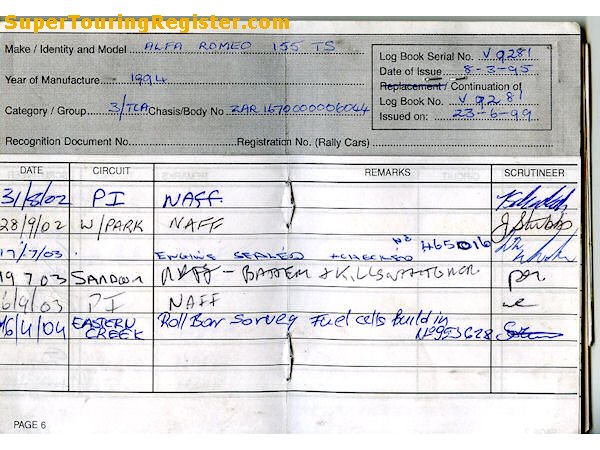 SuperTouringRegister.com
Make / Identity and Model ALFA ROMEO 155 TS
Year of Manufacture 1994
Category / Group 3/TCA Chasis/Body No. ZAR 16700000006044
Recognition Document No. Registration No. (Rally Cars)
Log Book Serial No. V 9281
Date of Issue 8-3-95
Replacement / Continuation of
Log Book No. V 9281
Issued on: 23-6-99
DATE CIRCUIT REMARKS SCRUTINEER
31/8/02 PI NAFF
28/9/02 W/PARK NAFF J Stubbs
17/7/03 ENGINE SEALED + CHECKED No 465016
19 7 03 SANDOWN NAFF -
6/9/03 PI NAFF
16/4/04 EASTERN CREEK Roll Bar Survey Fuel cells build in
No 993628
PAGE 6